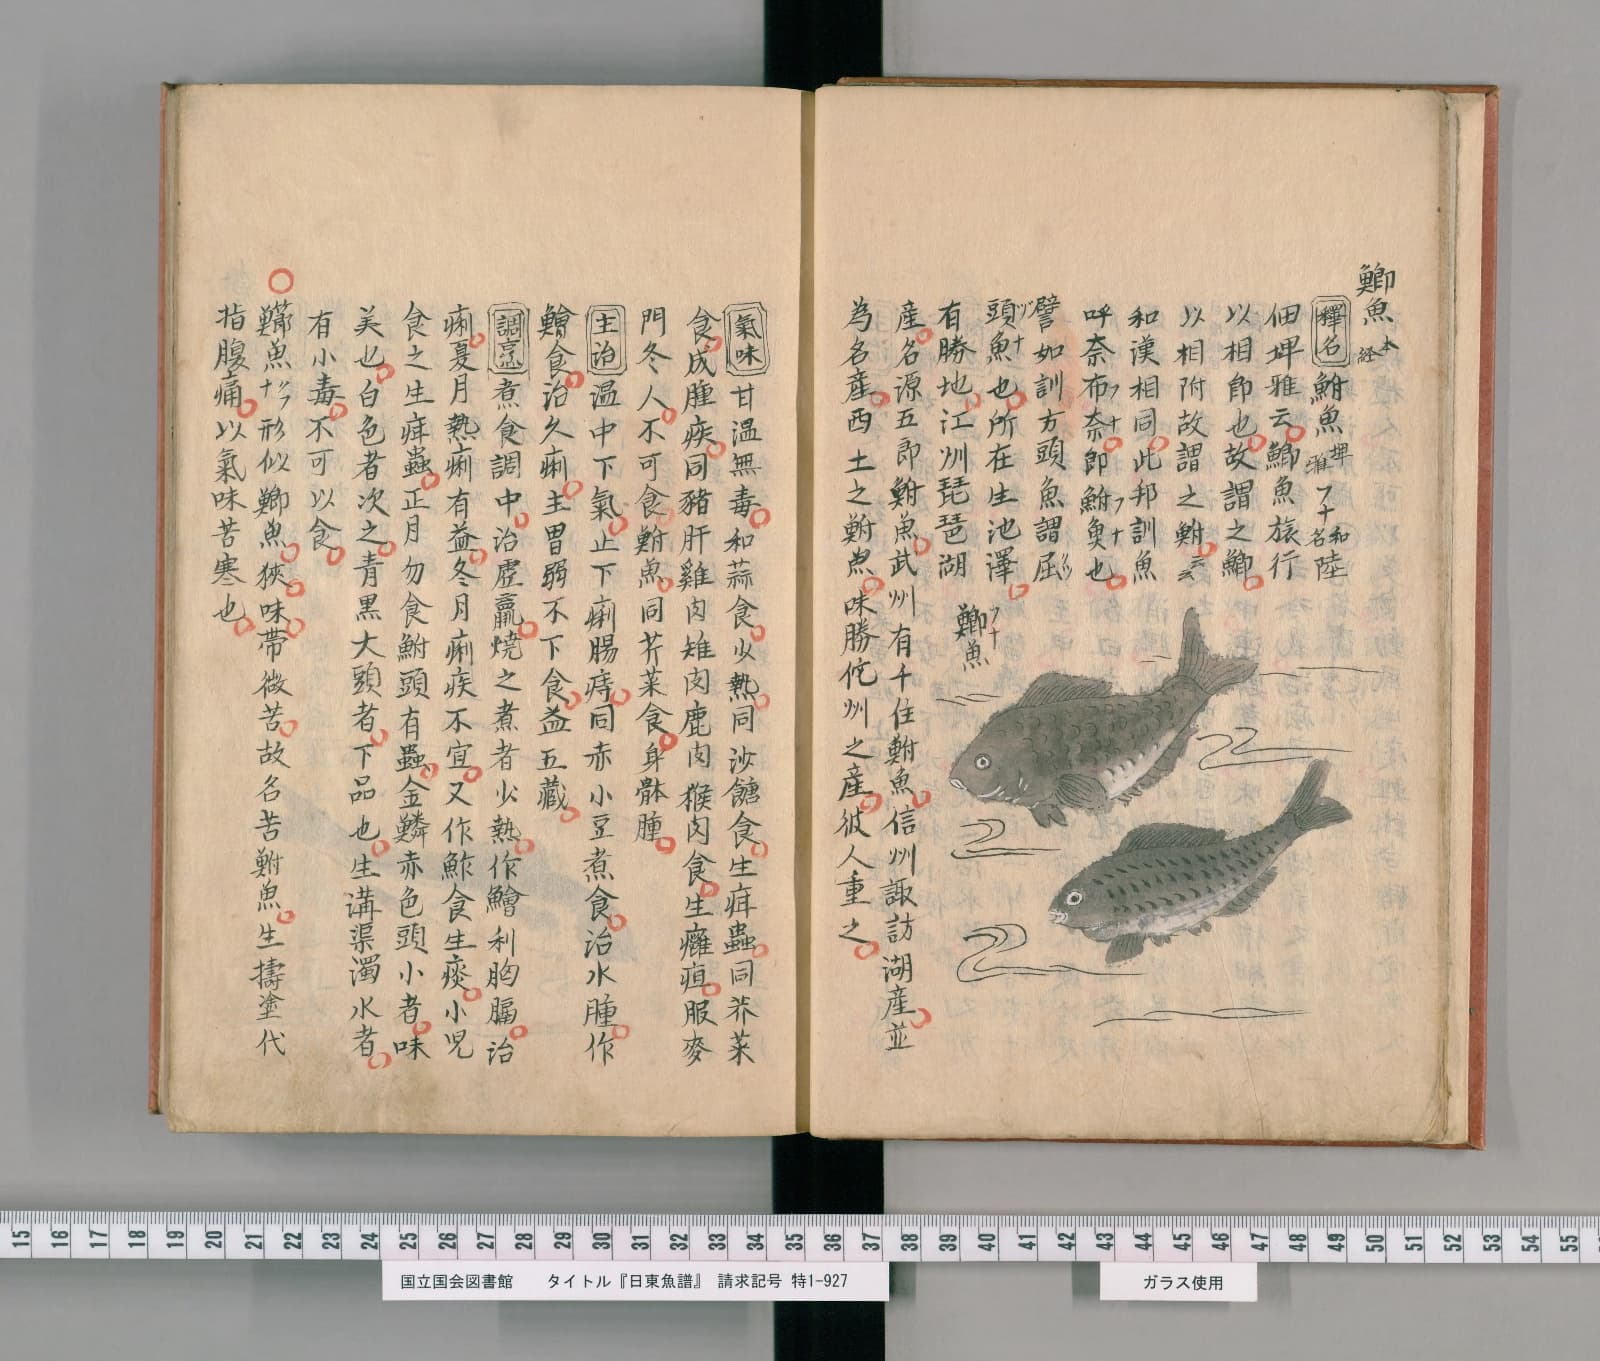 鯽魚本経
釋名 鮒魚埤雅 フナ和名 陸
佃埤雅云鯽魚旅行
以相即也故謂之鯽
以相附故謂之鮒云云
和漢相同此邦訓魚
呼奈布奈フナ即鮒魚フナ也
譬如訓方頭魚謂屈クツ
頭ヅ魚ナ也所在生池澤
有勝地江州琵琶湖
産名源五郎鮒魚武州有千住鮒魚信州諏訪湖産並
為名産西土之鮒魚味勝佗州之産彼人重之
鯽フナ魚
氣味 甘温無毒和蒜食少熱同沙餹食生疳蟲同芥菜
食成腫疾同豬肝雞肉雉肉鹿肉猴肉食生癰疽服麥
門冬人不可食鮒魚同芥菜食身骵腫
主治 温中下氣止下痢腸痔同赤小豆煮食治水腫作
鱠食治久痢主胃弱不下食益五藏
調烹 煮食調中治虚羸燒之煮者少熱作鱠利胸膈治
痢夏月熱痢有益冬月痢疾不宜又作鮓食生痰小児
食之生疳蟲正月勿食鮒頭有蟲金鱗赤色頭小者味
美也白色者次之青黒大頭者下品也生溝渠濁水者
有小毒不可以食
○鱭魚ナ形似鯽魚狹味帶微苦故名苦鮒魚生擣塗代
指腹痛以氣味苦寒也
15 16 17 18 19 20 21 22 23 24 25 26 27 28 29 30 31 32 33 34 35 36 37 38 39 40 41 42 43 44 45 46 47 48 49 50 51 52 53 54 55
国立国会図書館 タイトル『日東魚譜』 請求記号 特1-927
ガラス使用